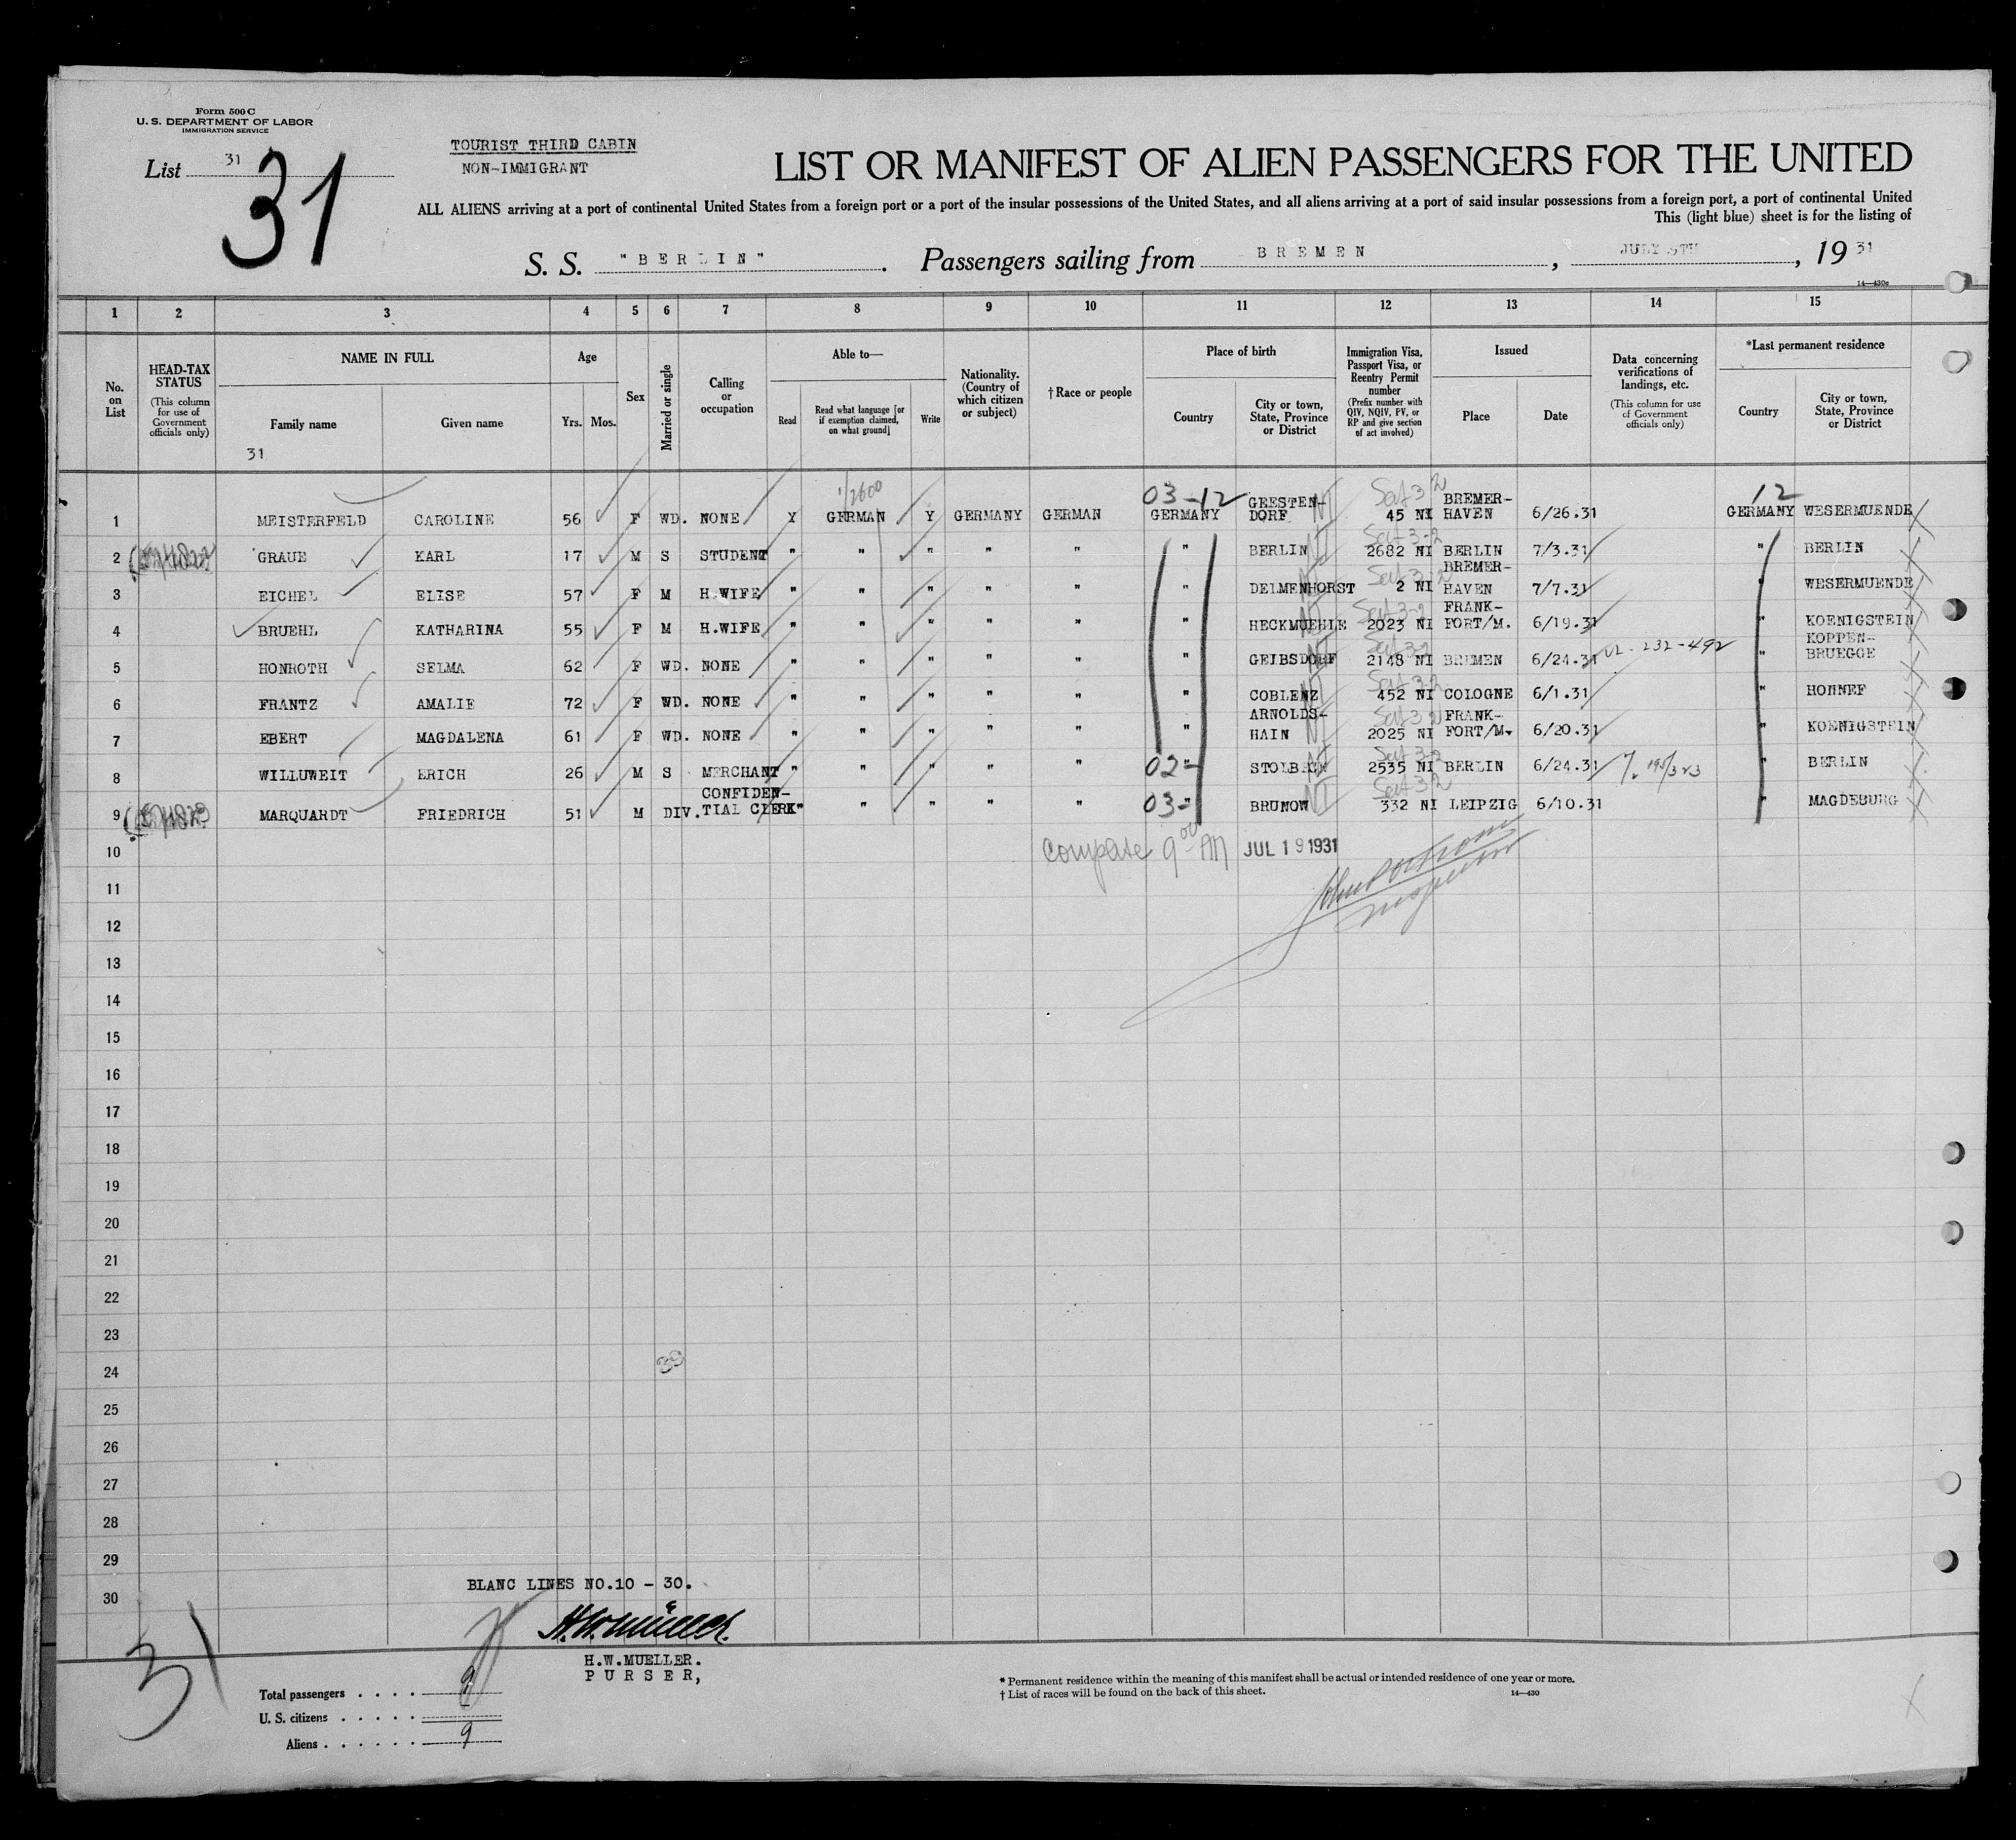 Form 500 C
U. S. DEPARTMENT OF LABOR
IMMIGRATION SERVICE
List 31
31
TOURIST THIRD CABIN
NON-IMMIGRANT
LIST OR MANIFEST OF ALIEN PASSENGERS FOR THE UNITED
ALL ALIENS arriving at a port of continental United States from a foreign port or a port of the insular possessions of the United States, and all aliens arriving at a port of said insular possessions from a foreign port, a port of continental United
This (light blue) sheet is for the listing of
S. S. "BERLIN". Passengers sailing from BREMEN, JULY 9TH, 1931
14—430c
1 2 3 4 5 6 7 8 9 10 11 12 13 14 15
No. on List
HEAD-TAX STATUS (This column for use of Government officials only)
NAME IN FULL
Family name
Given name
31
Age
Yrs. Mos.
Sex
Married or single
Calling or occupation
Able to—
Read
Read what language [or if exemption claimed, on what ground]
Write
Nationality. (Country of which citizen or subject)
† Race or people
Place of birth
Country
City or town, State, Province or District
Immigration Visa, Passport Visa, or Reentry Permit number (Prefix number with QIV, NQIV, PV, or RP and give section of act involved)
Issued
Place
Date
Data concerning verifications of landings, etc. (This column for use of Government officials only)
*Last permanent residence
Country
City or town, State, Province or District
03-12 12
1 MEISTERFELD CAROLINE 56 F WD. NONE Y GERMAN Y GERMANY GERMAN GERMANY GEESTEN-DORF 45 NI BREMER-HAVEN 6/26.31 GERMANY WESERMUENDE
2 GRAUE KARL 17 M S STUDENT " " " " " " BERLIN 2682 NI BERLIN 7/3.31 " BERLIN
3 EICHEL ELISE 57 F M H.WIFE " " " " " " DELMENHORST 2 NI BREMER-HAVEN 7/7.31 " WESERMUENDE
4 BRUEHL KATHARINA 55 F M H.WIFE " " " " " " HECKMUEHLE 2023 NI FRANK-FORT/M. 6/19.31 " KOENIGSTEIN
5 HONROTH SELMA 62 F WD. NONE " " " " " " GEIBSDORF 2148 NI BREMEN 6/24.31 " KOPPEN-BRUEGGE
6 FRANTZ AMALIE 72 F WD. NONE " " " " " " COBLENZ 452 NI COLOGNE 6/1.31 " HONNEF
7 EBERT MAGDALENA 61 F WD. NONE " " " " " " ARNOLDS-HAIN 2025 NI FRANK-FORT/M. 6/20.31 " KOENIGSTEIN
8 WILLUWEIT ERICH 26 M S MERCHANT " " " " " 02- STOLBECK 2535 NI BERLIN 6/24.31 " BERLIN
9 MARQUARDT FRIEDRICH 51 M DIV. CONFIDEN-TIAL CLERK " " " " " 03- " BRUNOW 332 NI LEIPZIG 6/10.31 " MAGDEBURG
10 complete 9 00 AM JUL 19 1931
11
12
13
14
15
16
17
18
19
20
21
22
23
24
25
26
27
28
29
30
BLANC LINES NO.10 - 30.
H.W. Müller.
H.W.MUELLER.
PURSER,
31
Total passengers . . . . 9
U. S. citizens . . . . .
Aliens . . . . . . 9
* Permanent residence within the meaning of this manifest shall be actual or intended residence of one year or more.
† List of races will be found on the back of this sheet.
14—430